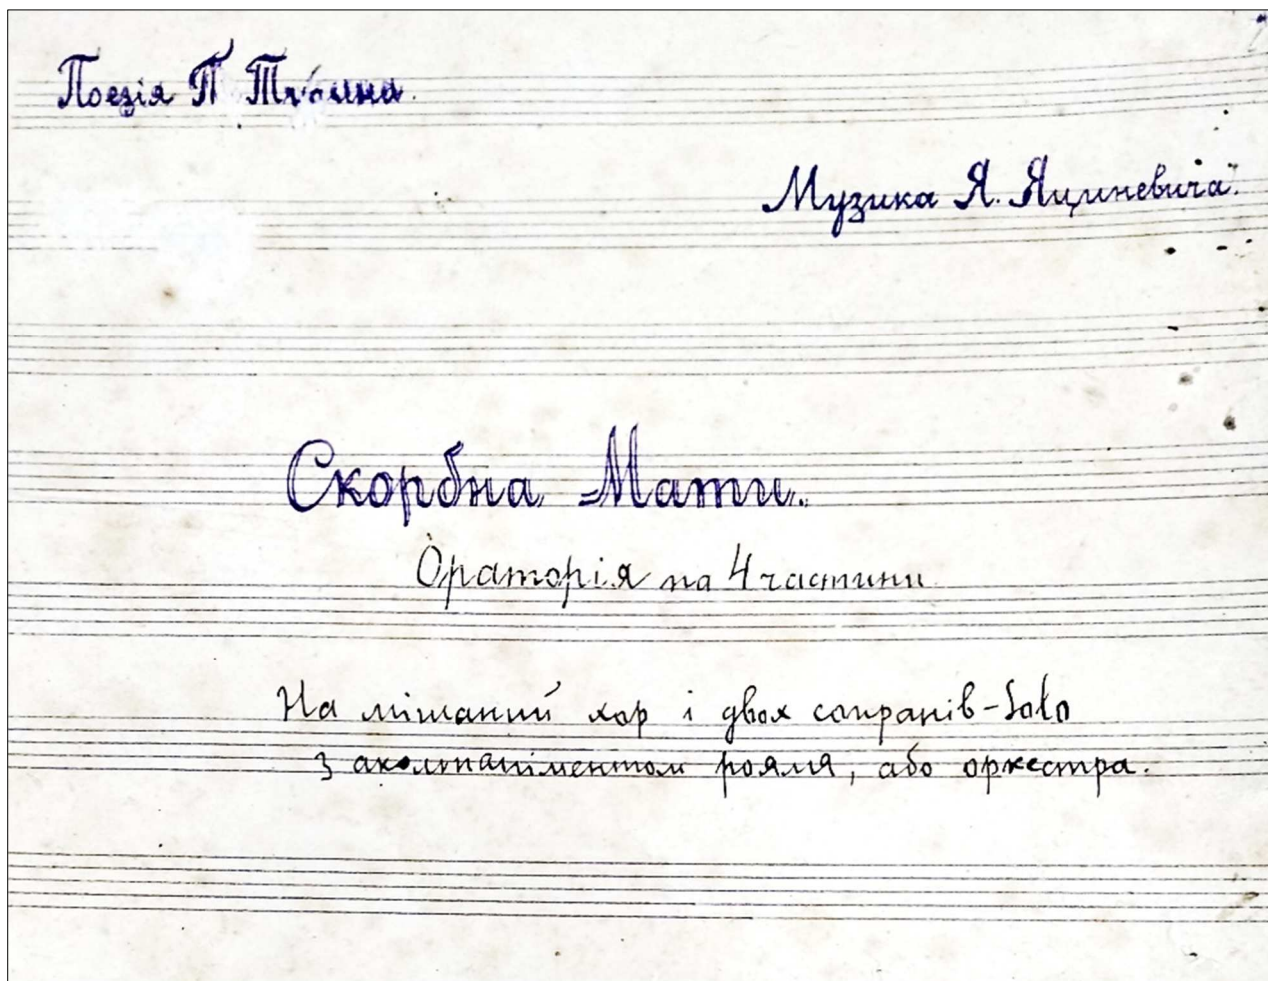 Поезія П. Тичина.
Музика Я. Яциневича.
Скорбна Мати.
Ораторія на 4 частини
На мішаний хор і двох сопранів-Solo
з акомпаніментом рояля, або оркестра.